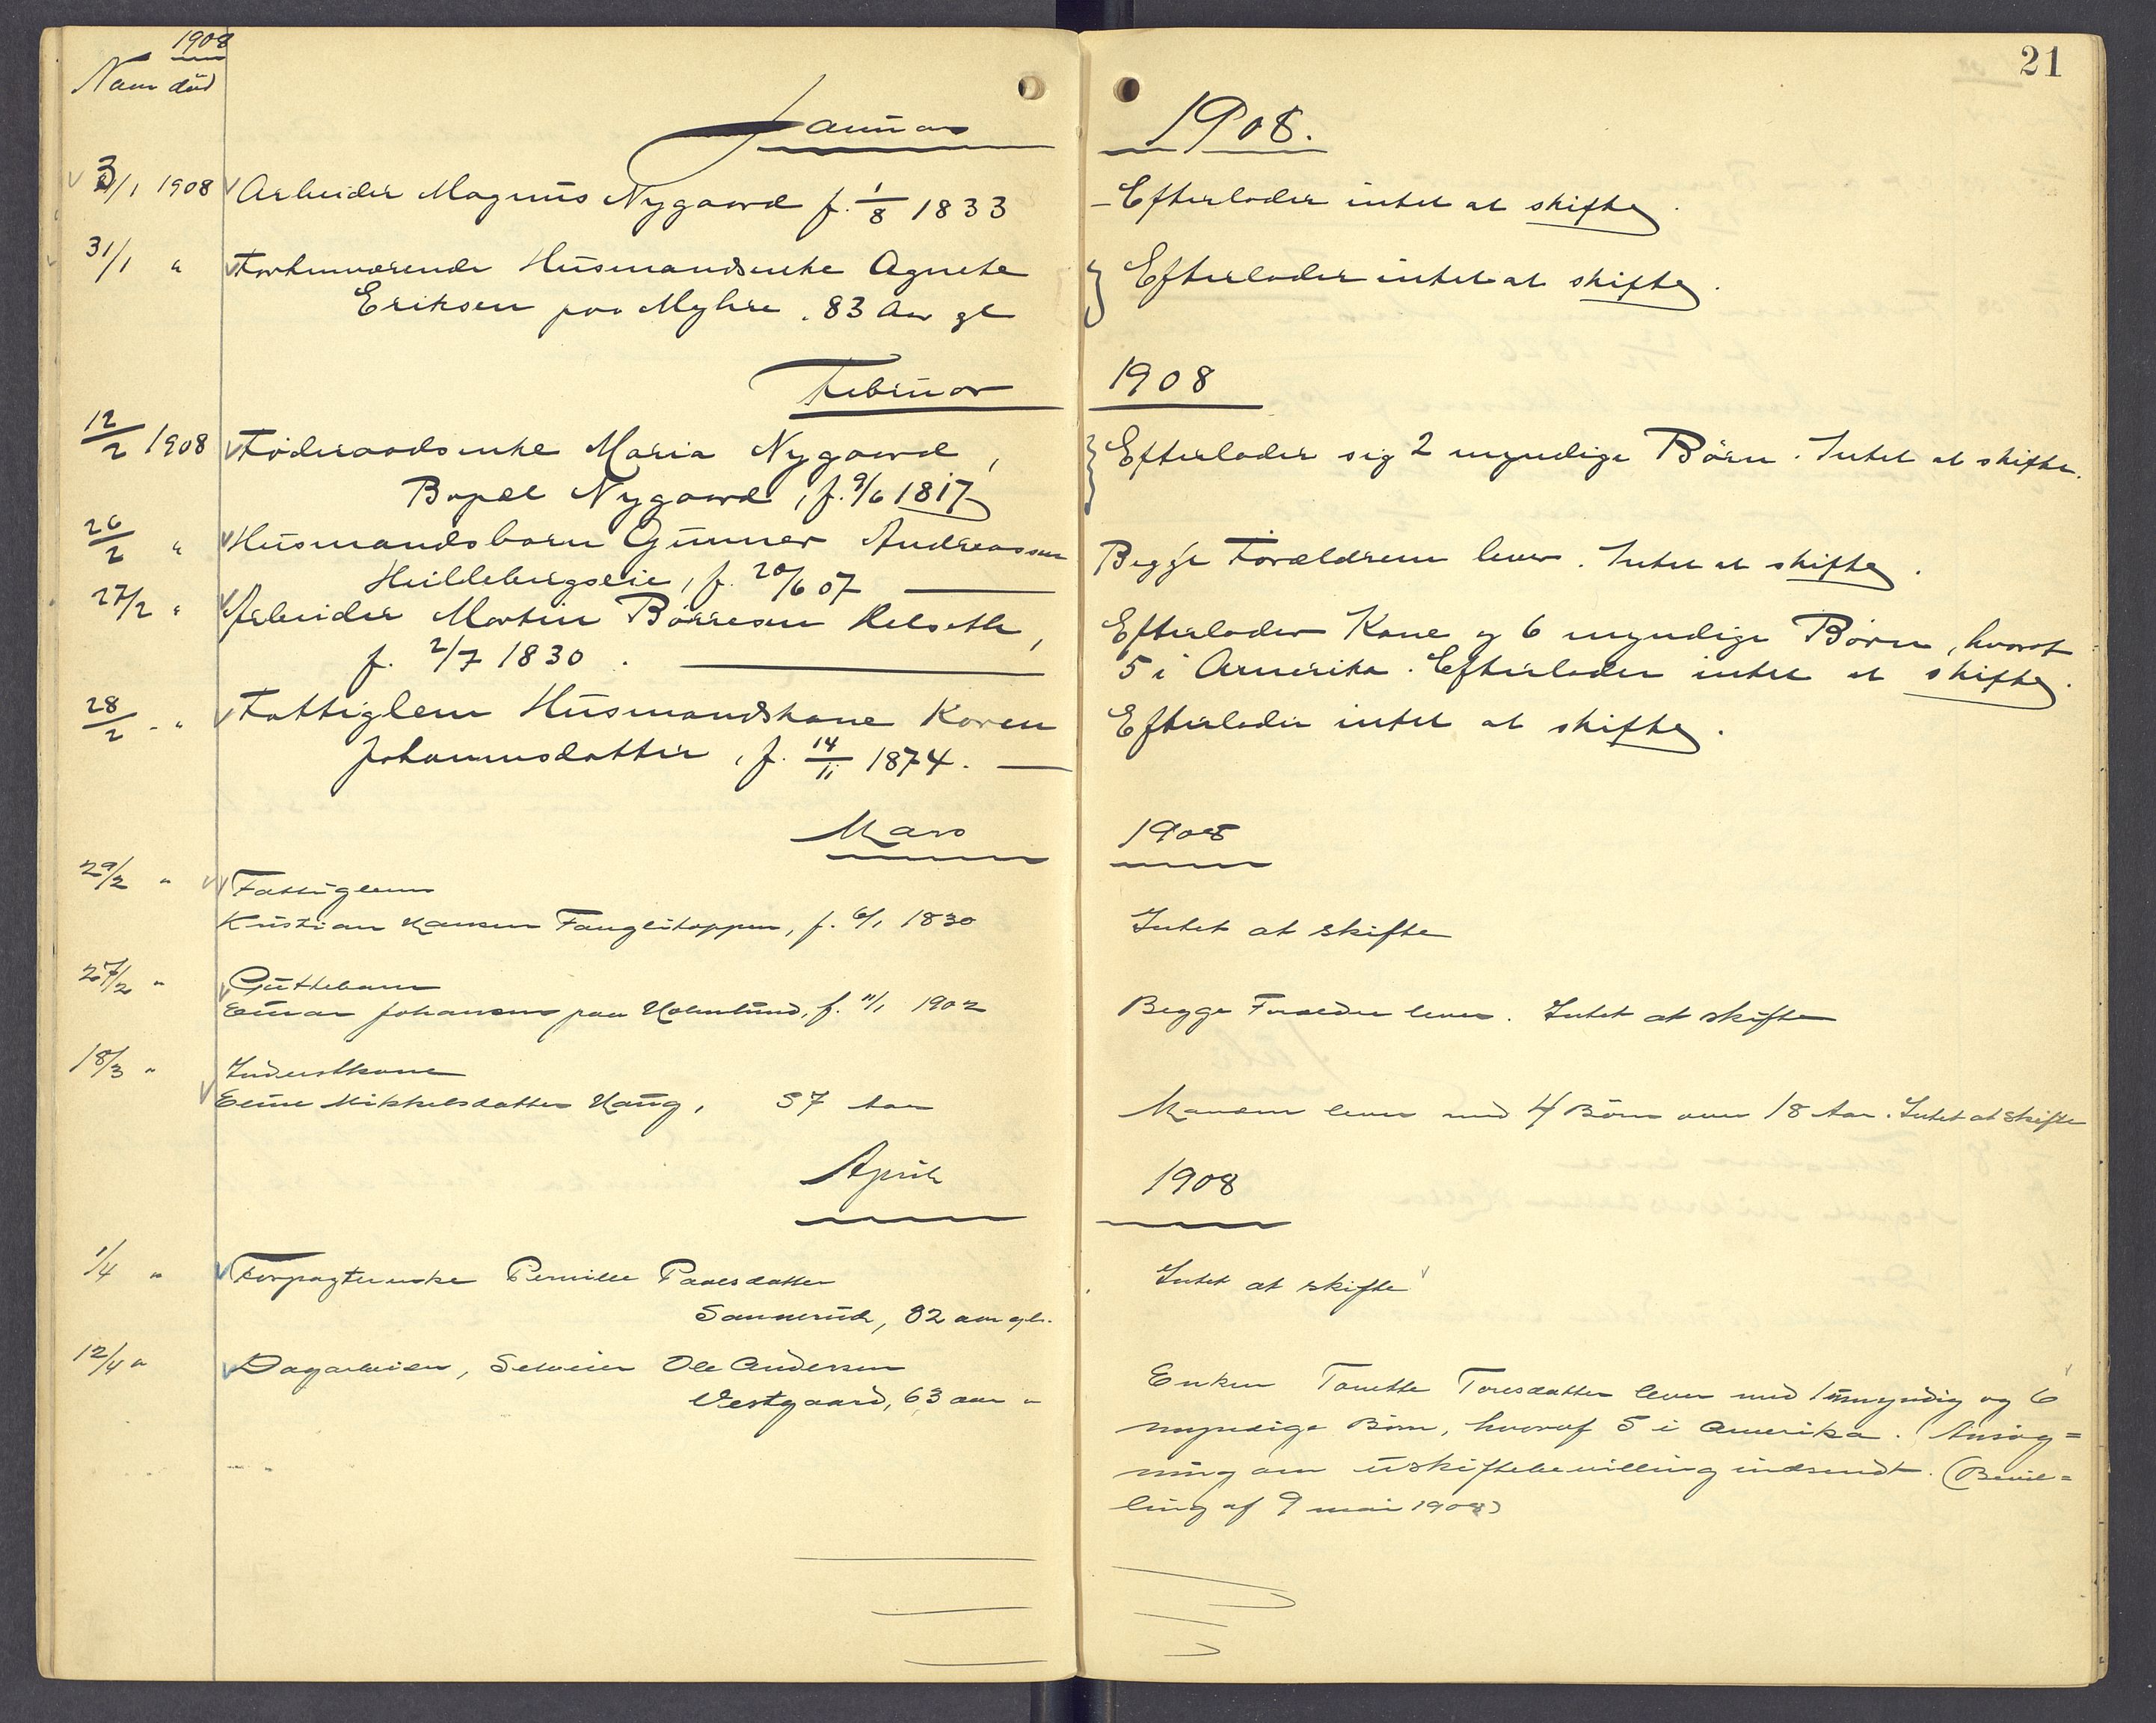 1908
Naar død
21
Januar 1908.
3/1 1908 Arbeider Magnus Nygaard f. 1/8 1833 - Efterlader intet at skifte.
31/1 " Forhenværende Husmandsenke Agnete Efterlader intet at skifte.
Eriksen paa Myhre. 83 Aar gl
Februar 1908
12/2 1908 Føderaadsenke Maria Nygaard, Efterlader sig 2 myndige Børn. Intet at skifte.
Bopæl Nygaard, f. 9/6 1817
26/2 " Husmandsbarn Gunnar Andreassen Begge Forældrene lever. Intet at skifte.
f. 20/6 07
27/2 " Arbeider Martin Børresen Helseth, Efterlader Kone og 6 myndige Børn, hvoraf
f. 2/7 1830. 5 i Amerika. Efterlader intet at skifte.
28/2 - " Fattiglem Husmandskone Karen Efterlader intet at skifte.
Johannesdatter, f. 14/11 1874.
Mars 1908
29/2 " Fattiglem
Kristian Hansen f. 6/1 1830 Intet at skifte
27/2 " Guttebarn
Einar Johansen paa Holmlund, f. 11/1 1902 Begge Forældre lever. Intet at skifte
18/3 " Inderstkone
Eline Mikkelsdatter Haug, 57 Aar Manden lever med 4 Børn over 18 Aar. Intet at skifte
April 1908
1/4 " Forpagterenke Pernille Paalsdatter Intet at skifte
Sannerud, 82 aar gl.
12/4 " Dagarbeider, Selveier Ole Andersen
Vestgaard, 63 aar "
Enken Tonette Toresdatter lever med 1 umyndig og 6
myndige Børn, hvoraf 5 i Amerika. Ansøg=
ning om uskiftebevilling indsendt. (Bevil=
ling af 9 mai 1908)